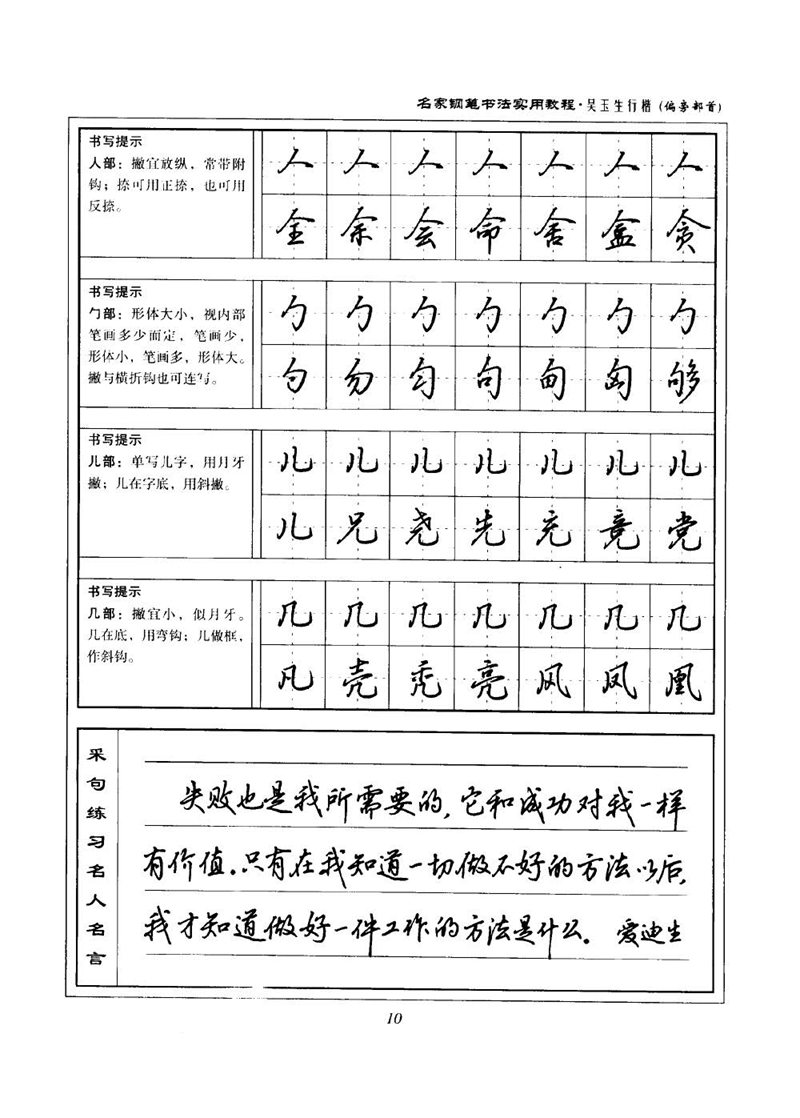 名家钢笔书法实用教程·吴玉生行楷(偏旁部首)
书写提示
人部：撇宜放纵，常带附
钩；捺可用正捺，也可用
反捺。
人 人 人 人 人 人 人
全 余 会 命 舍 盒 贪
书写提示
勹部：形体大小，视内部
笔画多少而定，笔画少，
形体小，笔画多，形体大。
撇与横折钩也可连写。
勹 勹 勹 勹 勹 勹 勹
勺 勿 匀 句 甸 匈 够
书写提示
儿部：单写儿字，用月牙
撇；儿在字底，用斜撇。
儿 儿 儿 儿 儿 儿 儿
儿 兄 尧 先 充 竟 党
书写提示
几部：撇宜小，似月牙。
几在底，用弯钩；几做框，
作斜钩。
几 几 几 几 几 几 几
凡 壳 秃 亮 风 凤 凰
采句练习名人名言
失败也是我所需要的，它和成功对我一样
有价值。只有在我知道一切做不好的方法以后，
我才知道做好一件工作的方法是什么。 爱迪生
10